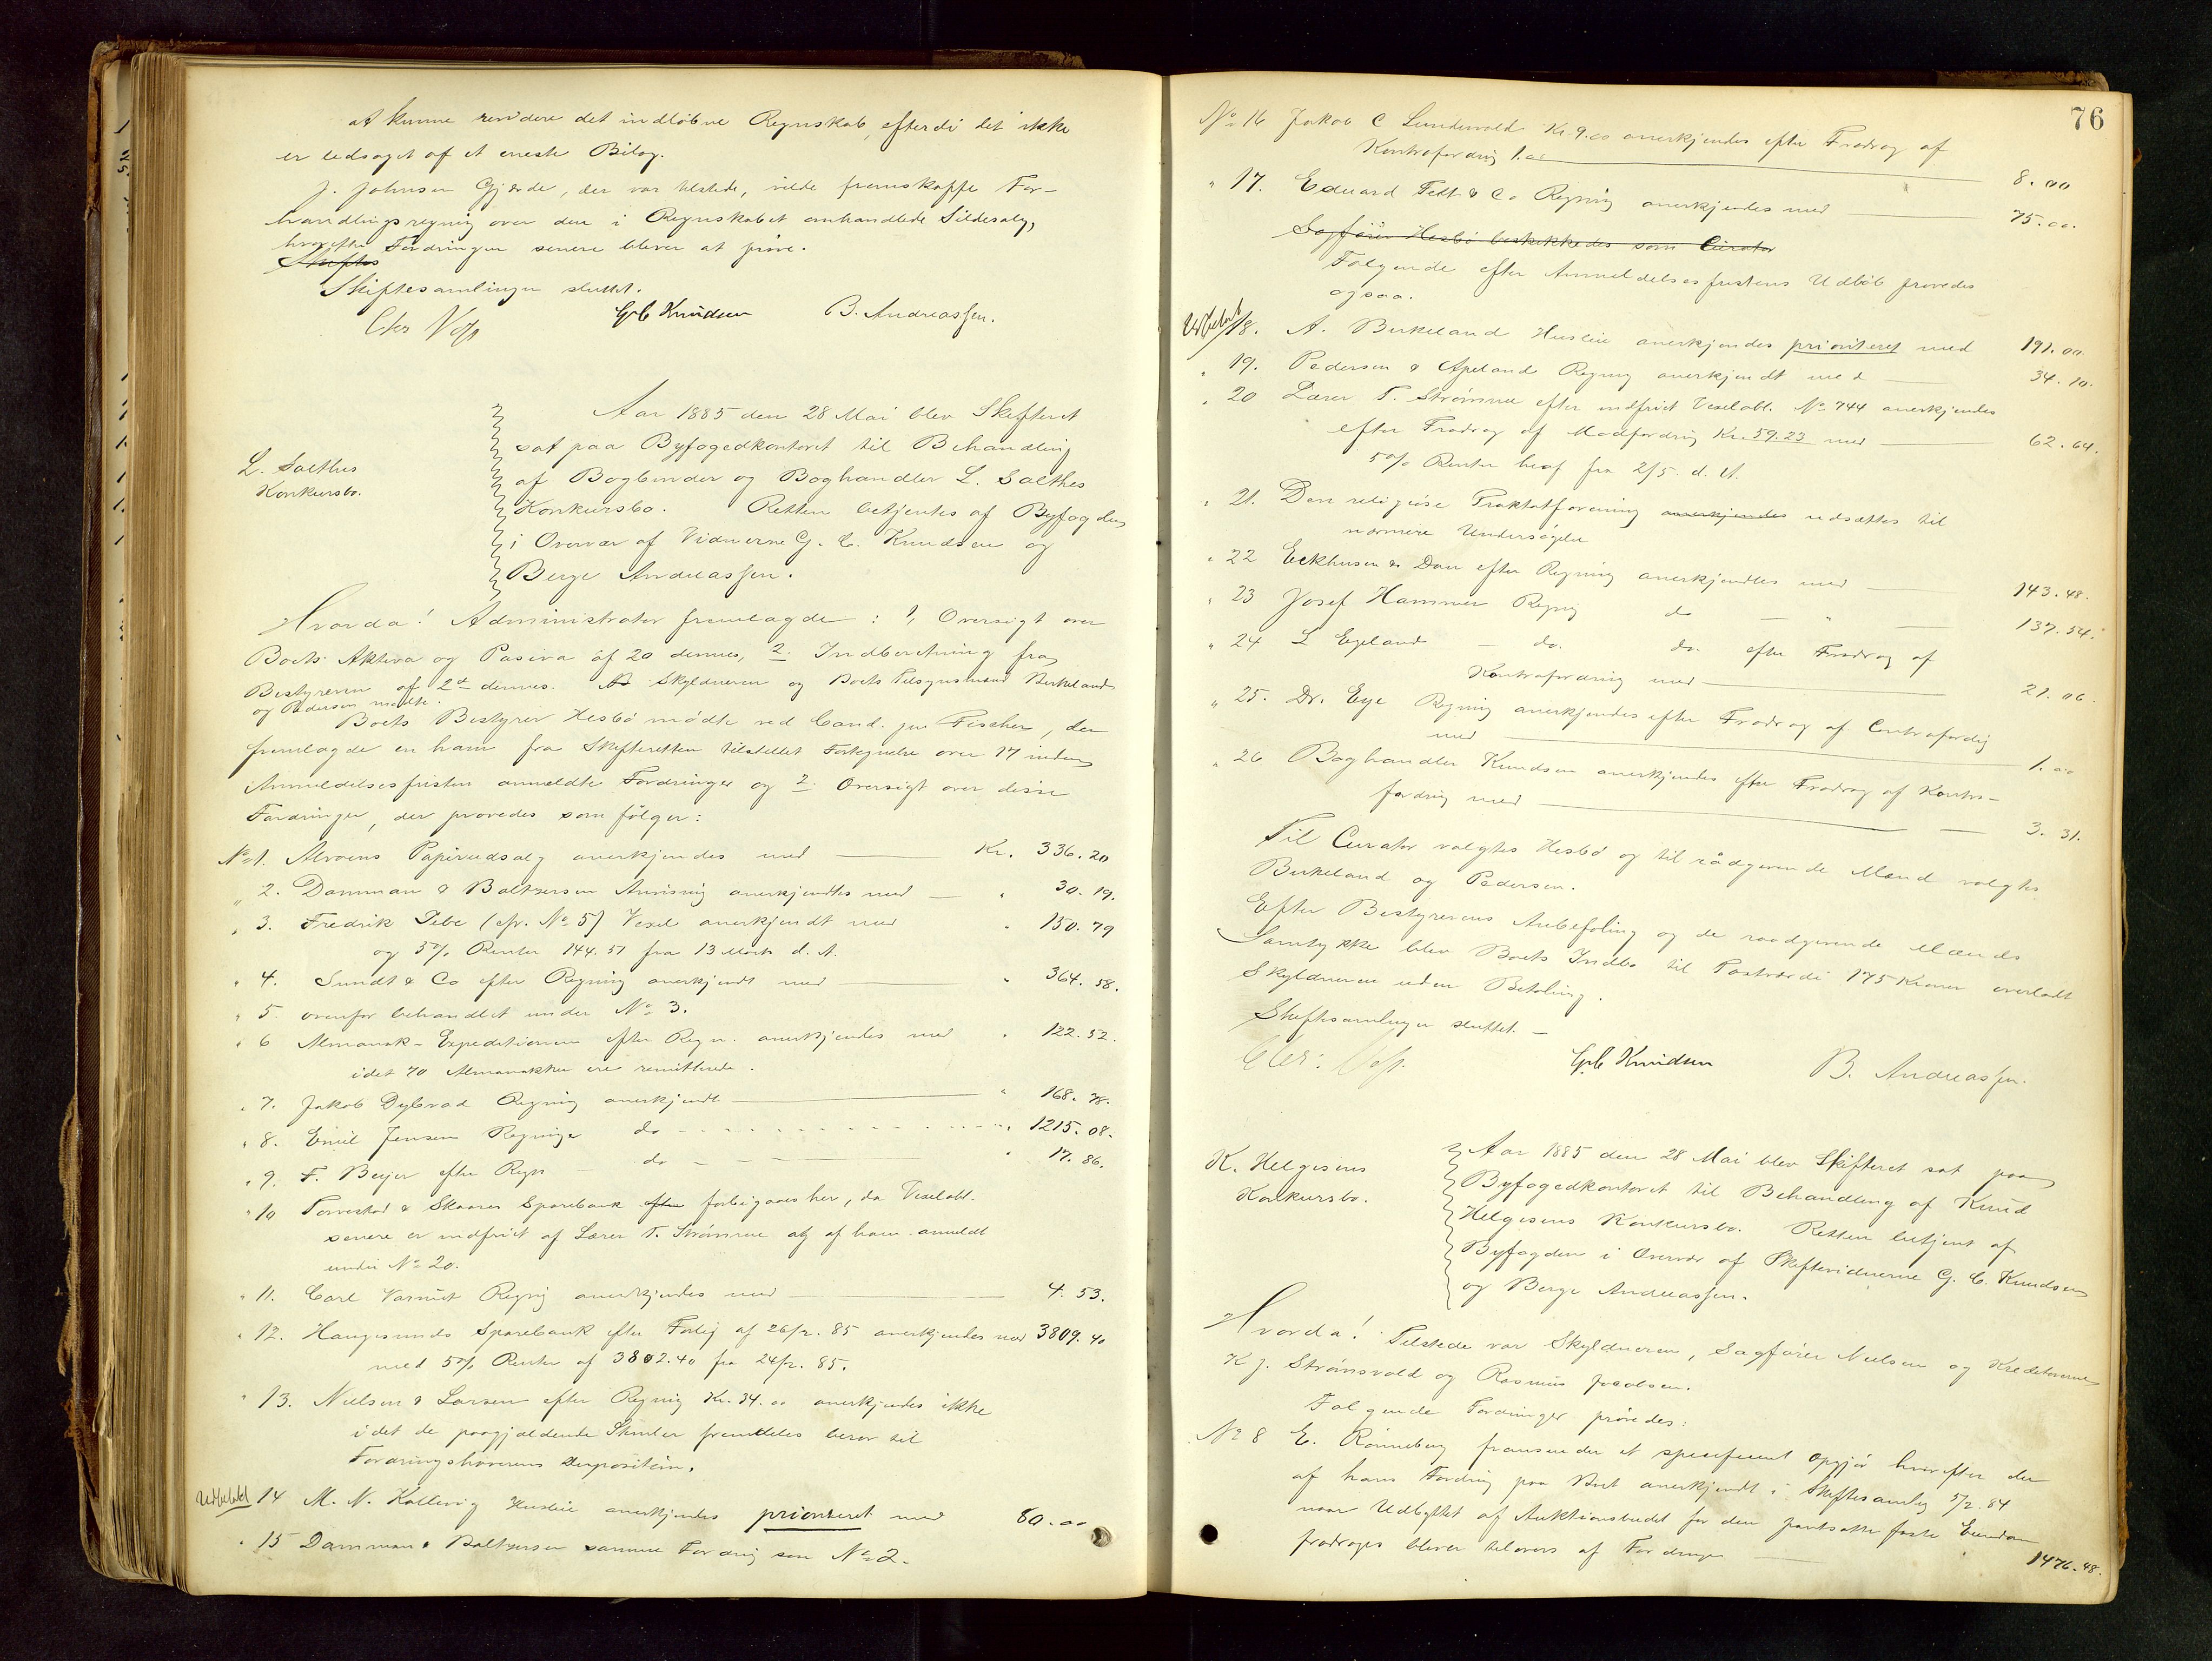 at kunne revidere det indløbne Regnskab, efterdi det ikke
er ledsaget af et eneste Bilag.
J. Johnsen Gjerde, der var tilstede, vilde fremskaffe For-
handlingsregning over den i Regnskabet omhandlede Sildesalg,
hvorefter Fordringen senere bliver at prøve.
Skiftes
Skiftesamlingen sluttet.
Chr Voss G C Knudsen B. Andreassen.
L. Salthes
Konkursbo.
Aar 1885 den 28 Mai blev Skifteret
sat paa Byfogedkontoret til Behandling
af Bogbinder og Boghandler L. Salthes
Konkursbo. Retten betjentes af Byfogden
i Overvær af Vidnerne G. C. Knudsen og
Berge Andreassen.
Hvorda! Administrator fremlagde: 1, Oversigt over
Boets Aktiva og Pasiva af 20 dennes, 2. Indberetning fra
Bestyreren af 2d dennes. Skyldneren og Boets Tilsynsmænd Birkeland
og Pedersen mødte.
Boets Bestyrer Hesbø mødte ved Cand. jur Fischer, der
fremlagde en ham fra Skifteretten tilstillet Fortegnelse over 17 inden
Anmeldelsesfristen anmeldte Fordringer og 2. Oversigt over disse
Fordringer, der prøvedes som følger:
No 1. Alvøens Papirudsalg anerkjendes med Kr. 336.20
" 2. Damman & Baltzersen Anvisning anerkjendtes med " 30.19.
" 3. Fredrik Pebe (cfr. No 5) Vexel anerkjendt med " 150.79
og 5% Renter 144.51 fra 13 Marts d. A.
" 4. Sundt & Co efter Regning anerkjendt med " 364.58.
" 5. ovenfor behandlet under No 3.
" 6 Almanak-Expeditionen efter Regn. anerkjendes med " 122.52.
idet 70 Almanakker ere remitterede.
" 7. Jakob Dybvad Regning anerkjendt " 168.78.
" 8. Emil Jensen Regninge do " 1215.08.
" 9. F. Beyer efter Regn do " 17.86.
" 10 Torvestad & Skaares Sparebank efter forbigaaes her, da Vexelobl.
senere er indfriet af Lærer T. Strømme og af ham anmeldt
under No 20.
" 11. Carl Varnut Regning anerkjendes med 4.53.
" 12. Haugesunds Sparebank efter Forlig af 26/2. 85 anerkjendes med 3809.40
med 5% Renter af 3802.40 fra 24/2. 85.
" 13. Nielsen & Larsen efter Regning Kr. 34.00 anerkjendes ikke
idet de paagjældende Skruler fremdeles beror til
Fordringshaverens Disposition.
Udbetalt 14 M. N. Kallevig Husleie anerkjendes prioriteret med 80.00
" 15 Damman & Baltzersen samme Fordring som No 2.
76
No 16 Jakob C Lundevold Kr 9.00 anerkjendes efter Fradrag af
Kontrafordring 1.00 8.00
" 17. Eduard Fett & Co Regning anerkjendes med 75.00.
Sagfører Hesbø beskikkedes som Curator
Følgende efter Anmeldelsesfristens Udløb prøvedes
ogsaa.
Udbetalt 18. A. Birkeland Husleie anerkjendes prioriteret med 191.00.
" 19. Pedersen & Apeland Regning anerkjendt med 34.10.
" 20 Lærer T. Strømme efter indfriet Vexelobl. No 744 anerkjendes
efter Fradrag af Modfordring Kr. 59.23 med 62.64.
5% Renter heraf fra 2/5. d. A.
" 21. Den religiøse Traktatforening anerkjendes udsættes til
nærmere Undersøgelse
" 22 Eckhusen & Dan efter Regning anerkjendtes med 143.48.
" 23 Josef Hammer Regning do " 137.54.
" 24 L Egeland do. do. efter Fradrag af
Kontrafordring med 21.06.
" 25. Dr. Eye Regning anerkjendes efter Fradrag af Contrafordring
med 1.00
" 26 Boghandler Knudsen anerkjendes efter Fradrag af Kontra-
fordring med 3.31.
Til Curator valgtes Hesbø og til rådgivende Mænd valgtes
Birkeland og Pedersen.
Efter Bestyrerens Anbefaling og de raadgivende Mænds
Samtykke blev Boets Indbo til Taxtværdi 175 Kroner overladt
Skyldneren uden Betaling.
Skiftesamlingen sluttet.
Chr: Voss. G C Knudsen B. Andreassen.
K. Helgesens
Konkursbo.
Aar 1885 den 28 Mai blev Skifteret sat paa
Byfogedkontoret til Behandling af Knud
Helgesens Konkursbo. Retten betjent af
Byfogden i Overvær af Skiftevidnerne G. C. Knudsen
og Berge Andreassen.
Hvorda! Tilstede var Skyldneren, Sagfører Nielsen og Kreditorerne
K J. Strømsvold og Rasmus Jacobsen.
Følgende Fordringer prøvedes:
No 8 E. Rønneberg fremsender et specificeret Opgjør hvorefter der
af hans Fordring paa Boet anerkjendt i Skiftesamling 5/2. 84
naar Udbyttet af Auktionsbudet for den pantsatte faste Eiendom
fradrages bliver tilovers af Fordringen 1476.48.